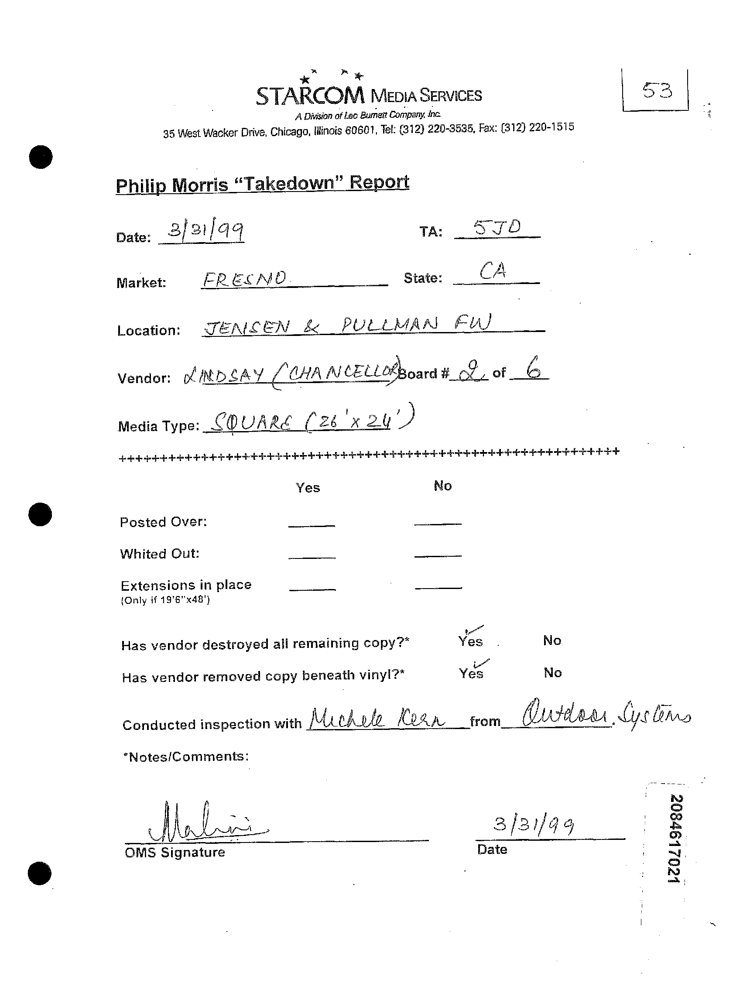 STARCOM MEDIA SERVICES
53
A Division of Leo Burnett Company, Inc.
35 West Wacker Drive, Chicago, Illinois 60601, Tel: (312) 220-3535, Fax: (312) 220-1515
Philip Morris "Takedown" Report
Date: 3/31/99 TA: 5JD
Market: FRESNO State: CA
Location: JENSEN & PULLMAN FW
Vendor: LINDSAY (CHANCELLOR) Board # 2 of 6
Media Type: SQUARE (26'x24')
++++++++++++++++++++++++++++++++++++++++++++++++++++++++++++
Yes No
Posted Over:
Whited Out:
Extensions in place
(Only if 19'6"x48')
Has vendor destroyed all remaining copy?* Yes No
Has vendor removed copy beneath vinyl?* Yes No
Conducted inspection with Michele Kern from Outdoor Systems
*Notes/Comments:
Malini 3/31/99
OMS Signature Date
2084617021